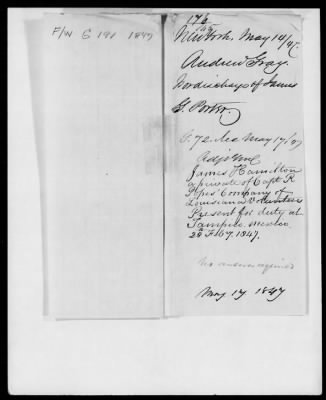 F/W G 191 1847
176
New York, May 14/47.
Andrew Gray.
of James
G. Porter.
G. 72. Rec May 17/47
James Hamilton
a private of Capt R
Company of
Louisiana Volunteers
Present for duty at
Tampico, Mexico
28 Feb'y. 1847.
No answer required
May 17 1847